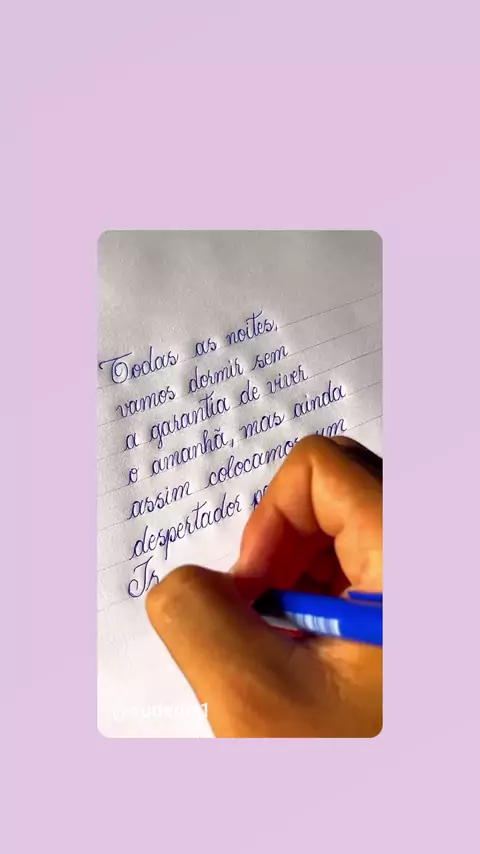 Todas as noites,
vamos dormir sem
a garantia de viver
o amanhã, mas ainda
assim colocamos um
despertador